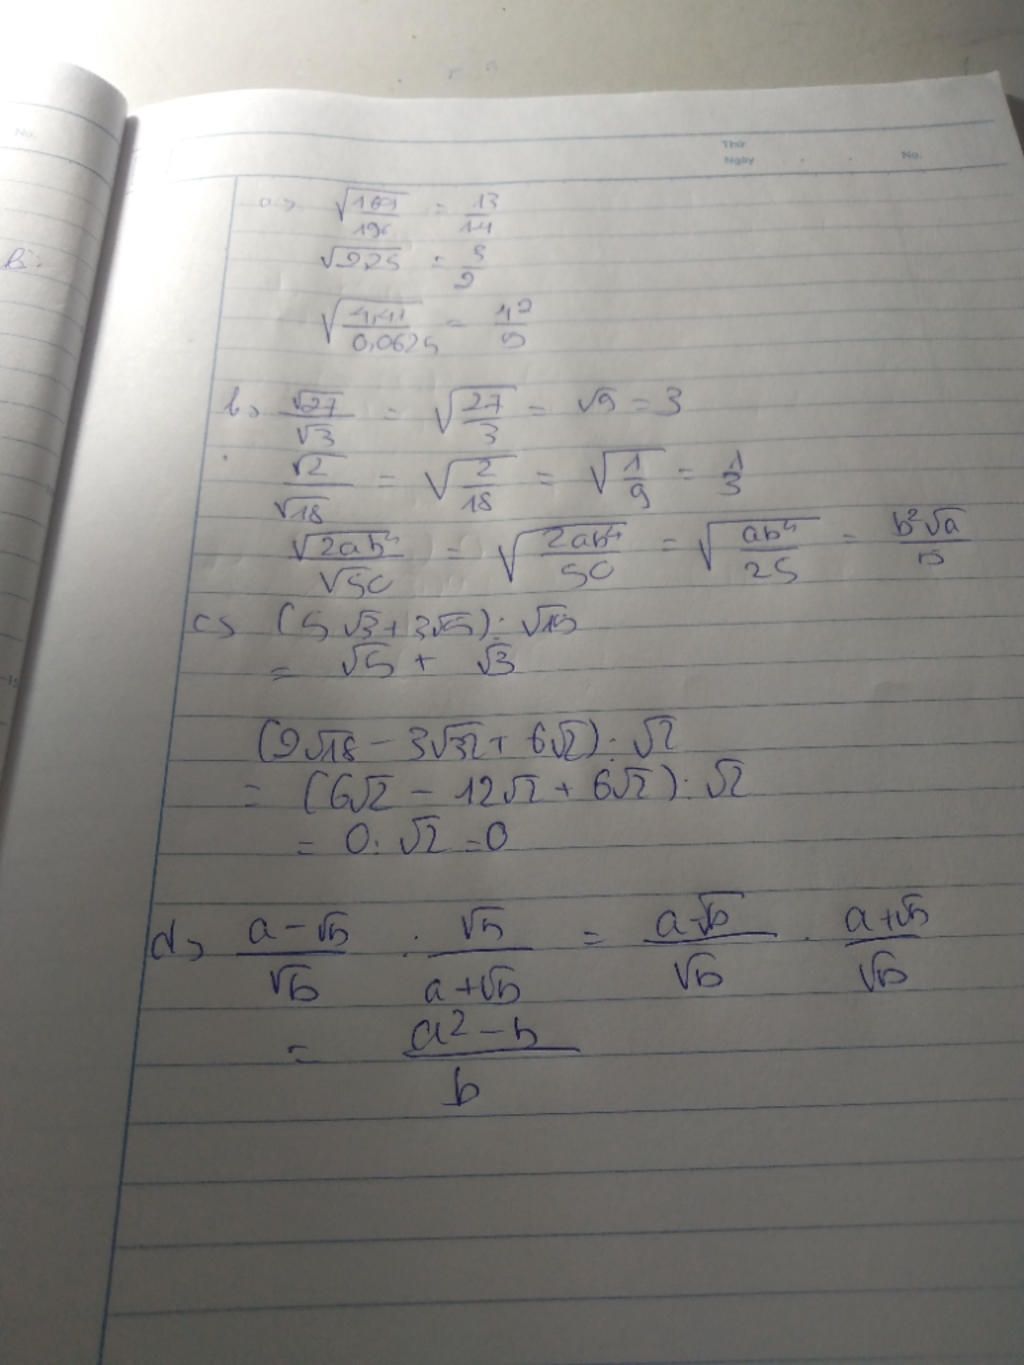 Thứ
Ngày No.
No.
a> √(169/196) = 13/14
√2,25 = 
√(4,41/0,0625) = 
b> √27/√3 = √(27/3) = √9 = 3
√2/√18 = √(2/18) = √(1/9) = 1/3
√2ab⁴/√50 = √(2ab⁴/50) = √(ab⁴/25) = b²√a/5
c> (5√3 + 3√5) : √15
= √5 + √3
(2√18 - 3√32 + 6√2) : √2
= (6√2 - 12√2 + 6√2) : √2
= 0 : √2 = 0
d> a - √b/√b : √b/a + √b = a - √b/√b . a + √b/√b
= a² - b/b